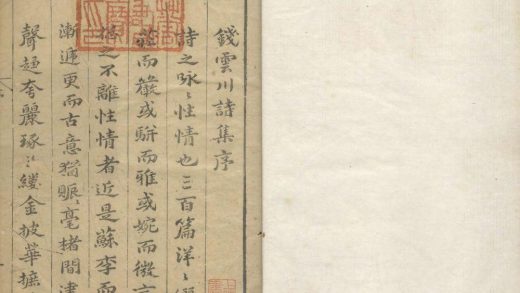 錢雲川詩集序
詩之咏〻性情也三百篇洋〻
而或駢而雅或婉而微
之不離性情者近是蘇李而
漸遞更而古意猶賑〻毫楮間
聲趨夸麗琢〻縷金披華摭